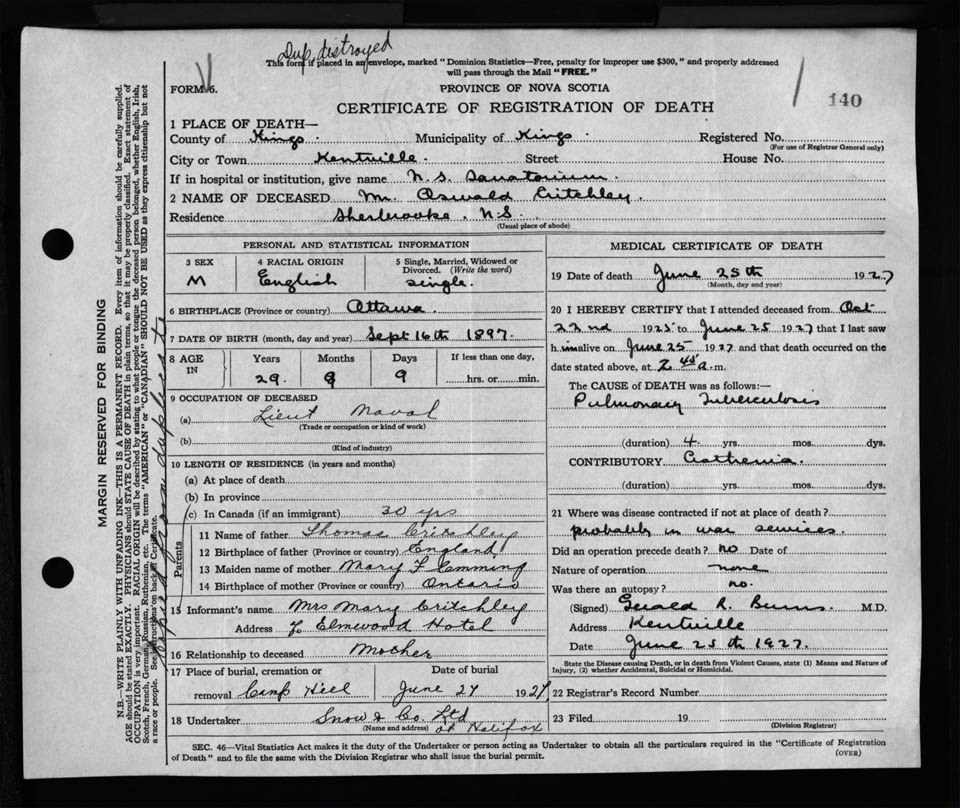 Dup. distroyed
This form if placed in an envelope, marked "Dominion Statistics—Free, penalty for improper use $300," and properly addressed
will pass through the Mail "FREE."
FORM 6.
PROVINCE OF NOVA SCOTIA
140
CERTIFICATE OF REGISTRATION OF DEATH
1 PLACE OF DEATH—
County of Kings. Municipality of Kings. Registered No.
(For use of Registrar General only)
City or Town Kentville. Street House No.
If in hospital or institution, give name N.S. Sanatorium.
2 NAME OF DECEASED Mr. Oswald Critchley.
Residence Sherbrooke. N.S.
(Usual place of abode)
PERSONAL AND STATISTICAL INFORMATION
3 SEX 4 RACIAL ORIGIN 5 Single, Married, Widowed or
Divorced. (Write the word)
M English single.
6 BIRTHPLACE (Province or country) Ottawa.
7 DATE OF BIRTH (month, day and year) Sept 16th 1897.
8 AGE IN Years Months Days If less than one day,
29. 9 9 hrs. or min.
9 OCCUPATION OF DECEASED
(a) Lieut Naval
(Trade or occupation or kind of work)
(b)
(Kind of industry)
10 LENGTH OF RESIDENCE (in years and months)
(a) At place of death
(b) In province
(c) In Canada (if an immigrant) 30 yrs
Parents
11 Name of father Thomas Critchley
12 Birthplace of father (Province or country) England
13 Maiden name of mother Mary Flemming
14 Birthplace of mother (Province or country) Ontario
15 Informant's name Mrs Mary Critchley
Address c/o Elmwood Hotel
16 Relationship to deceased Mother
17 Place of burial, cremation or Date of burial
removal Camp Hill June 27 1927
18 Undertaker Snow & Co. Ltd
(Name and address) at Halifax
MEDICAL CERTIFICATE OF DEATH
19 Date of death June 25th 1927
(Month, day and year)
20 I HEREBY CERTIFY that I attended deceased from Oct
22nd 1925 to June 25 1927 that I last saw
h im alive on June 25 1927 and that death occurred on the
date stated above, at 2 45 a. m.
The CAUSE OF DEATH was as follows:—
Pulmonary Tuberculosis
(duration) 4 yrs. mos. dys.
CONTRIBUTORY Asthenia.
(duration) yrs. mos. dys.
21 Where was disease contracted if not at place of death?
probably in war services.
Did an operation precede death? no Date of
Nature of operation none
Was there an autopsy? no.
(Signed) Gerald R. Burns. M.D.
Address Kentville
Date June 25th 1927.
State the Disease causing Death, or in death from Violent Causes, state (1) Means and Nature of
Injury, (2) whether Accidental, Suicidal or Homicidal.
22 Registrar's Record Number
23 Filed 19
(Division Registrar)
SEC. 46—Vital Statistics Act makes it the duty of the Undertaker or person acting as Undertaker to obtain all the particulars required in the "Certificate of Registration
of Death" and to file the same with the Division Registrar who shall issue the burial permit.
(OVER)
MARGIN RESERVED FOR BINDING
N.B.—WRITE PLAINLY WITH UNFADING INK—THIS IS A PERMANENT RECORD. Every item of information should be carefully supplied.
AGE should be stated EXACTLY. PHYSICIANS should STATE CAUSE OF DEATH in plain terms, so that it may be properly classified. Exact statement of
OCCUPATION is very important. RACIAL ORIGIN will be described by stating to what people or tongue the deceased person belonged, whether English, Irish,
Scotch, French, German, Russian, Ruthenian, etc. The terms "AMERICAN" or "CANADIAN" SHOULD NOT BE USED as they express citizenship but not
a race or people. See instructions on back of Certificate.
Copied from duplicate